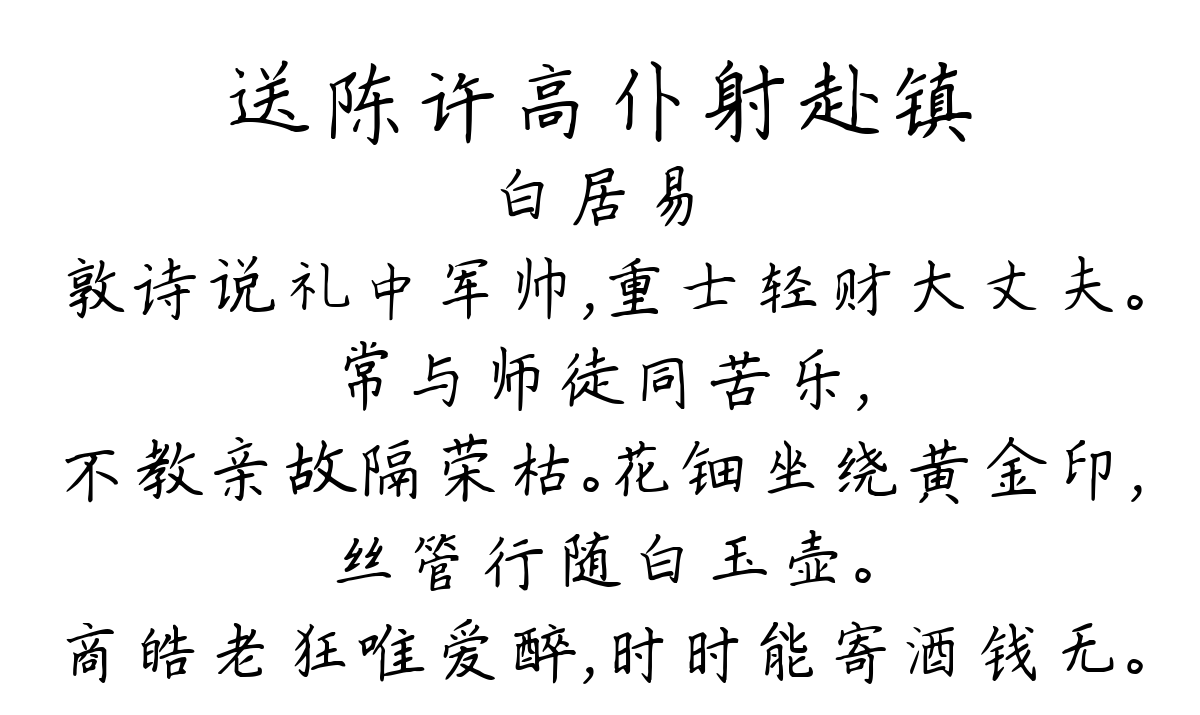 送陈许高仆射赴镇
白居易
敦诗说礼中军帅,重士轻财大丈夫。
常与师徒同苦乐,
不教亲故隔荣枯。花钿坐绕黄金印,
丝管行随白玉壶。
商皓老狂唯爱醉,时时能寄酒钱无。